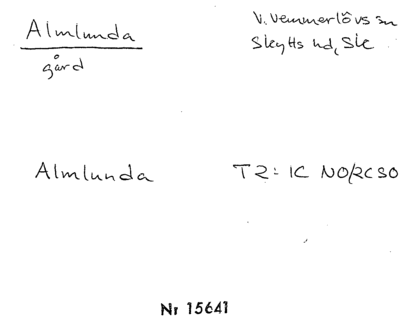 Almlunda
gård
V. Vemmerlövs sn
Skytts hd, Sk
Almlunda
T2: 1C NO/2C SO
Nr 15641